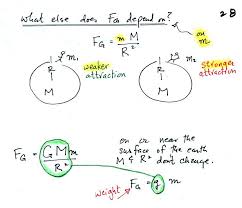 what else does FG depend on?
2B
on
m
FG = m M
R²
m₁
weaker
attraction
R
M
m₂
stronger
attraction
R
M
FG = G M m
R²
on or near the
surface of the earth
M & R² don't change.
weight FG = g m